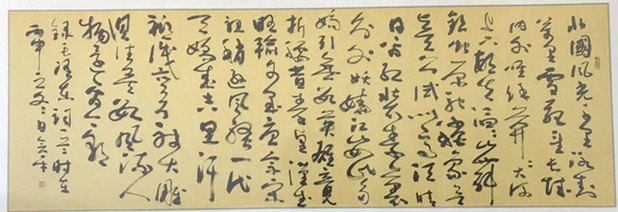 北國風光千里冰封
萬里雪飄望長城
内外惟餘莽〻大河
上下頓失滔〻山舞
銀蛇原馳蠟象欲
與天公試比高須晴
日看紅裝素裹
分外妖嬈江山如此多
嬌引無數英雄競
折腰惜秦皇漢武
略輸文采唐宗宋
祖稍遜風騷一代
天驕成吉思汗
祇識彎弓射大雕
俱往矣數風流人
物還看今朝
錄毛澤東詞一首時在
丙申之冬